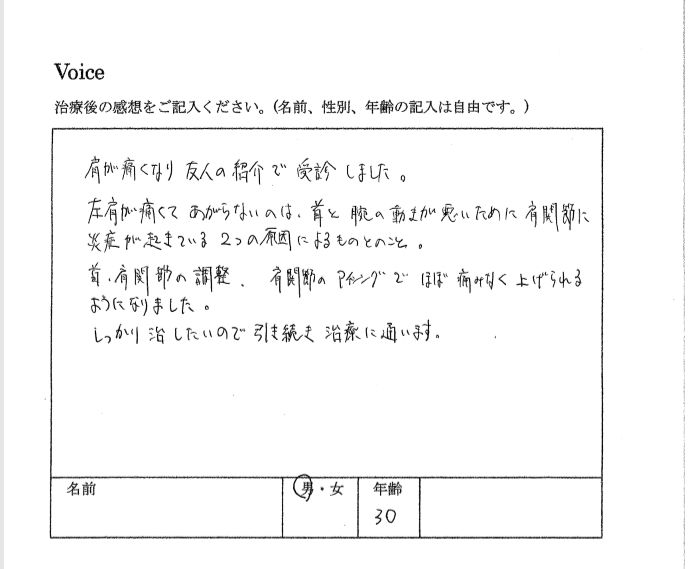 Voice
治療後の感想をご記入ください。(名前、性別、年齢の記入は自由です。)
肩が痛くなり 友人の紹介で 受診しました。
左肩が痛くて あがらないのは、首と 腕の動きが悪いために 肩関節に
炎症が起きている 2つの原因によるものとのこと。
首、肩関節の調整、肩関節のアイシングで ほぼ痛みなく上げられる
ようになりました。
しっかり治したいので引き続き治療に通います。
名前 男・女 年齢
30